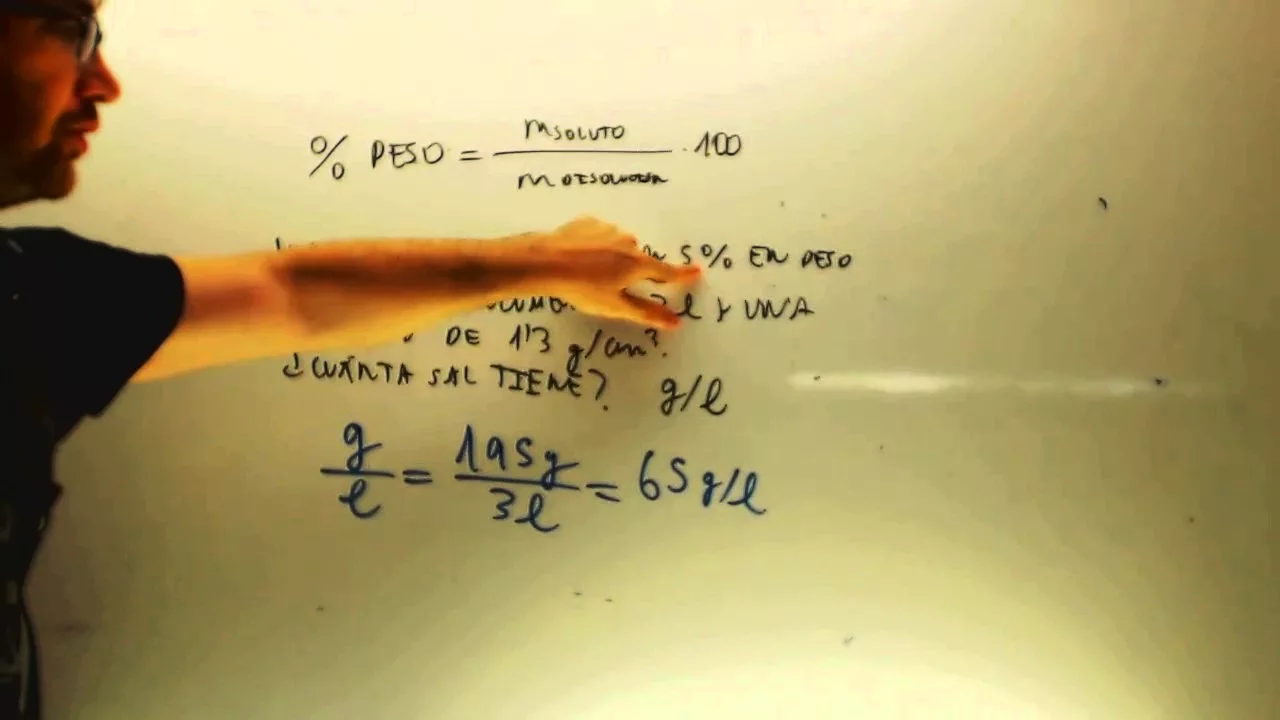 % PESO = mSOLUTO / m DISOLUCIÓN · 100
5% EN PESO
l Y UNA
DE 1'3 g/cm³.
¿CUÁNTA SAL TIENE? g/l
g/l = 195g/3l = 65 g/l